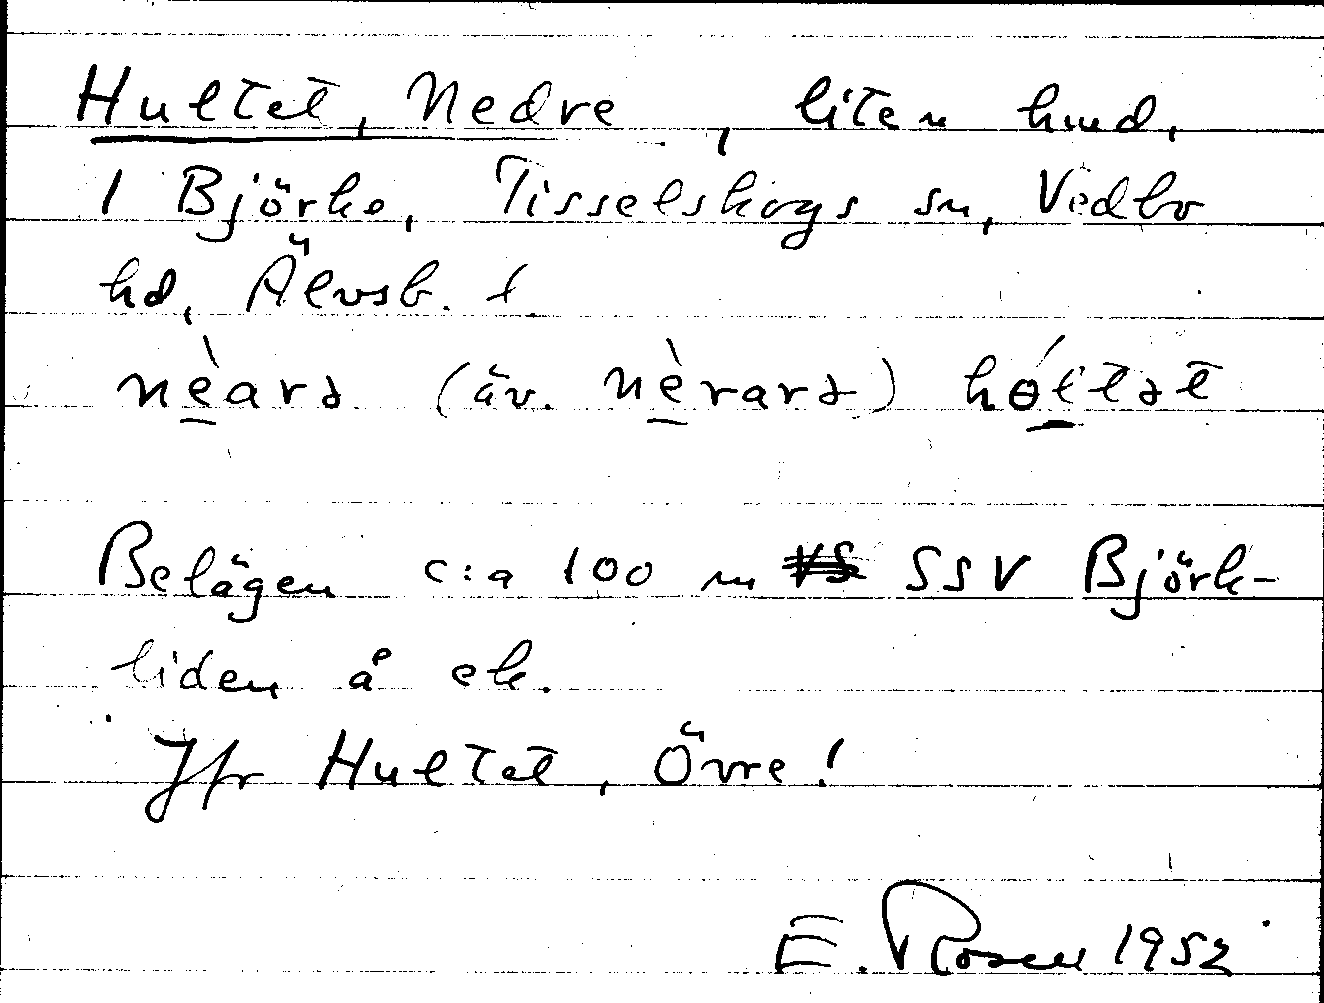 Hultet, Nedre, liten hmd,
1 Björke, Tisselskogs sn, Vedbo
hd, Älvsb. l
nèarə (äv. nèrarə) hóltət
Belägen c:a 100 m SSV Björk-
liden å ek.
Jfr Hultet, Övre!
E. Rosen 1952